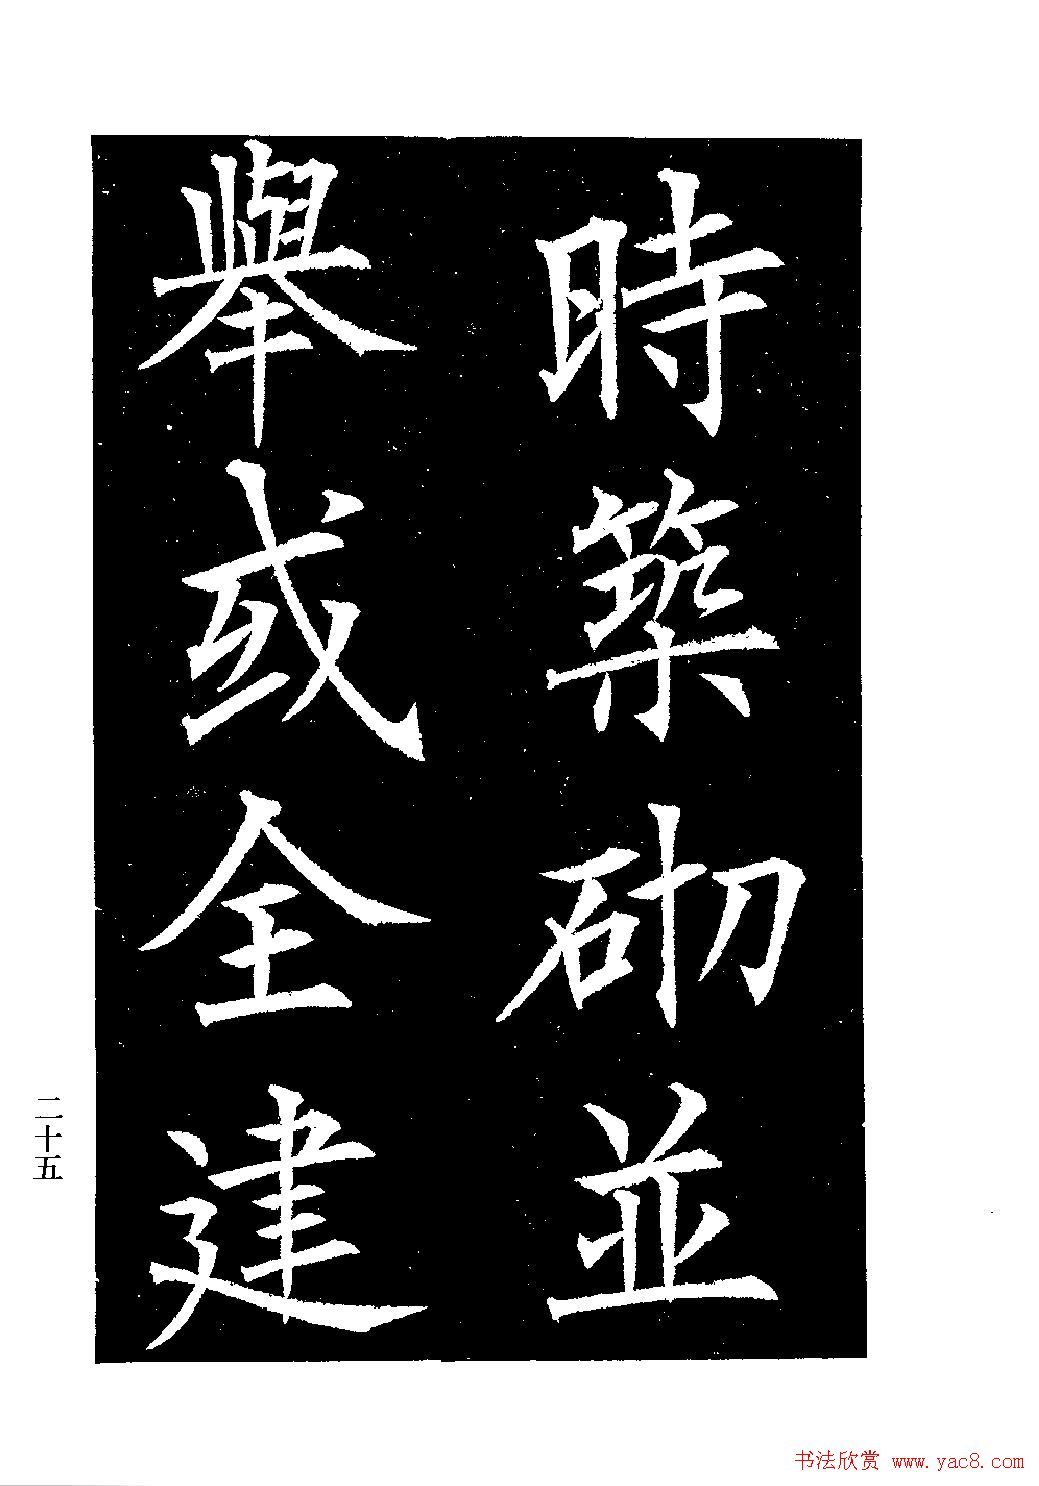 時築砌並
舉或全建
二十五
书法欣赏 www.yac8.com